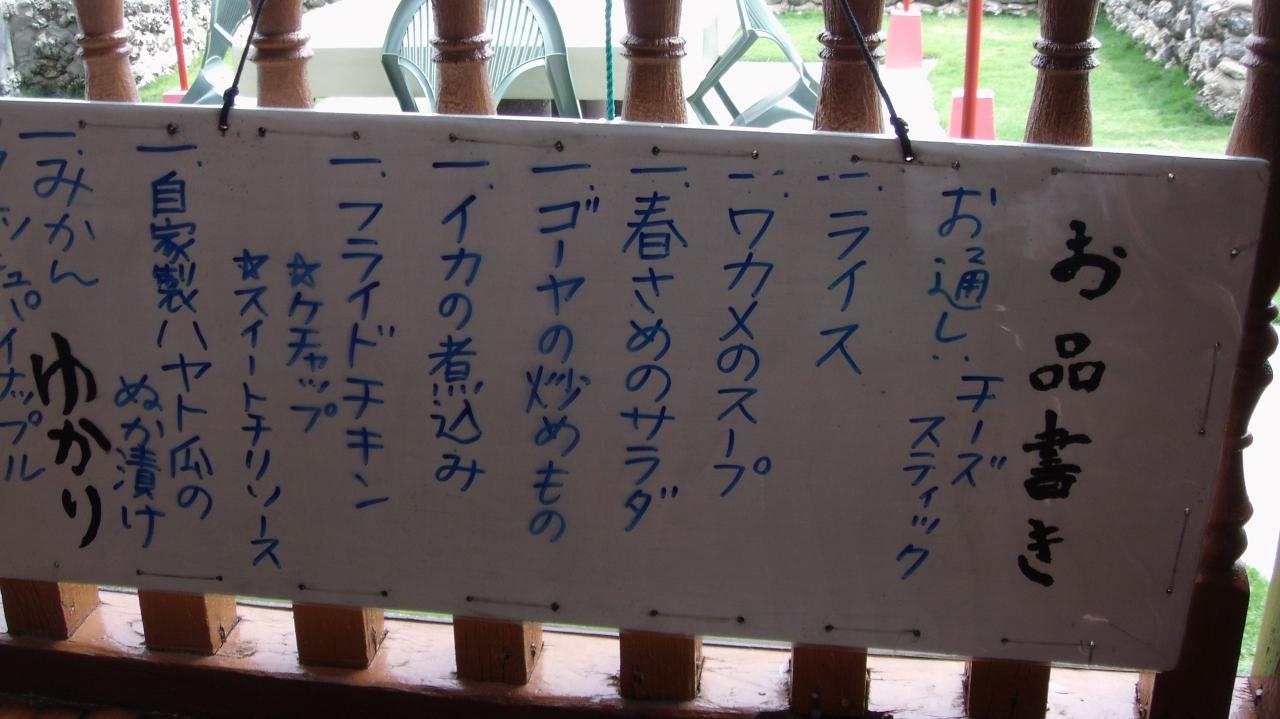 お品書き
お通し:チーズ
スティック
一.ライス
一.ワカメのスープ
一.春さめのサラダ
一.ゴーヤの炒めもの
一.イカの煮込み
一.フライドチキン
☆ケチャップ
☆スイートチリソース
一.自家製ハヤト瓜の
ぬか漬け
一.みかん
パイナップル
ゆかり